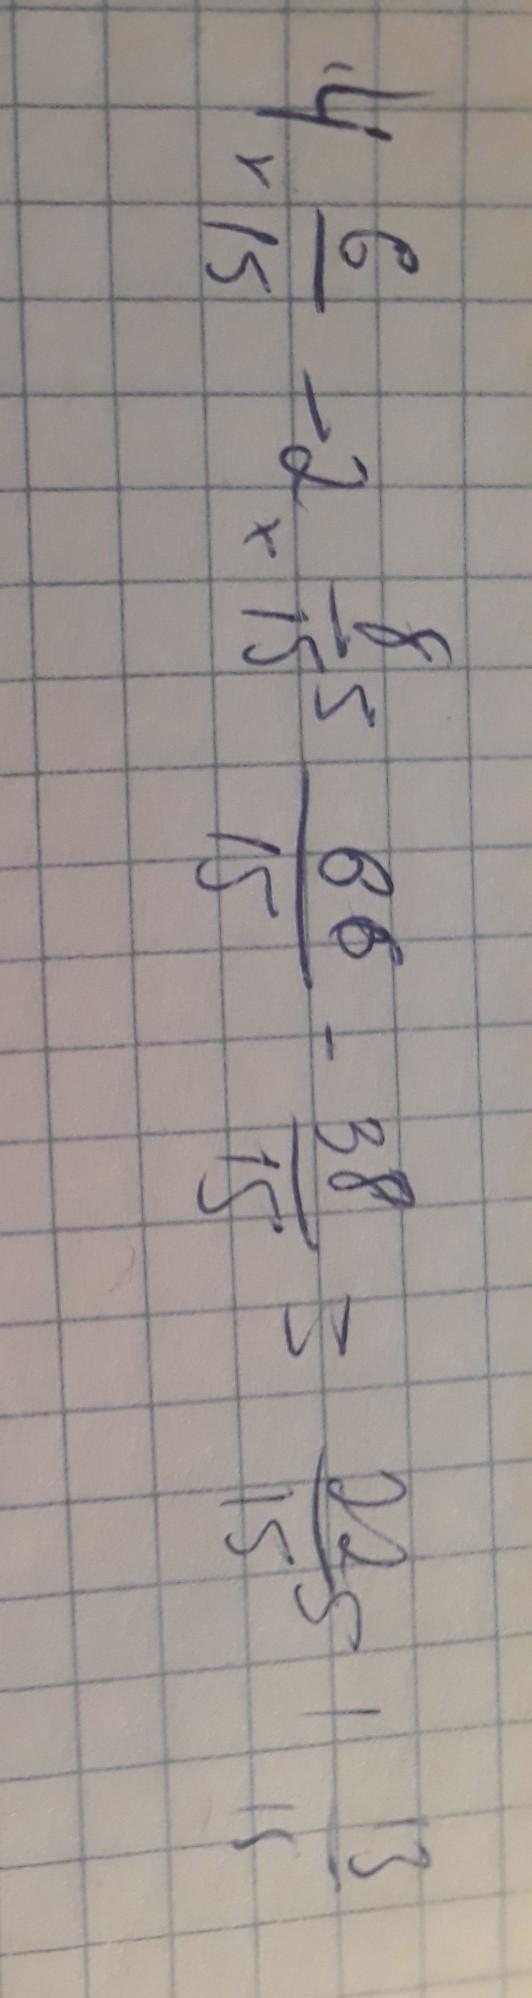 4 6/15 - 2 8/15 = 66/15 - 38/15 = 22/15 = 1 13/15